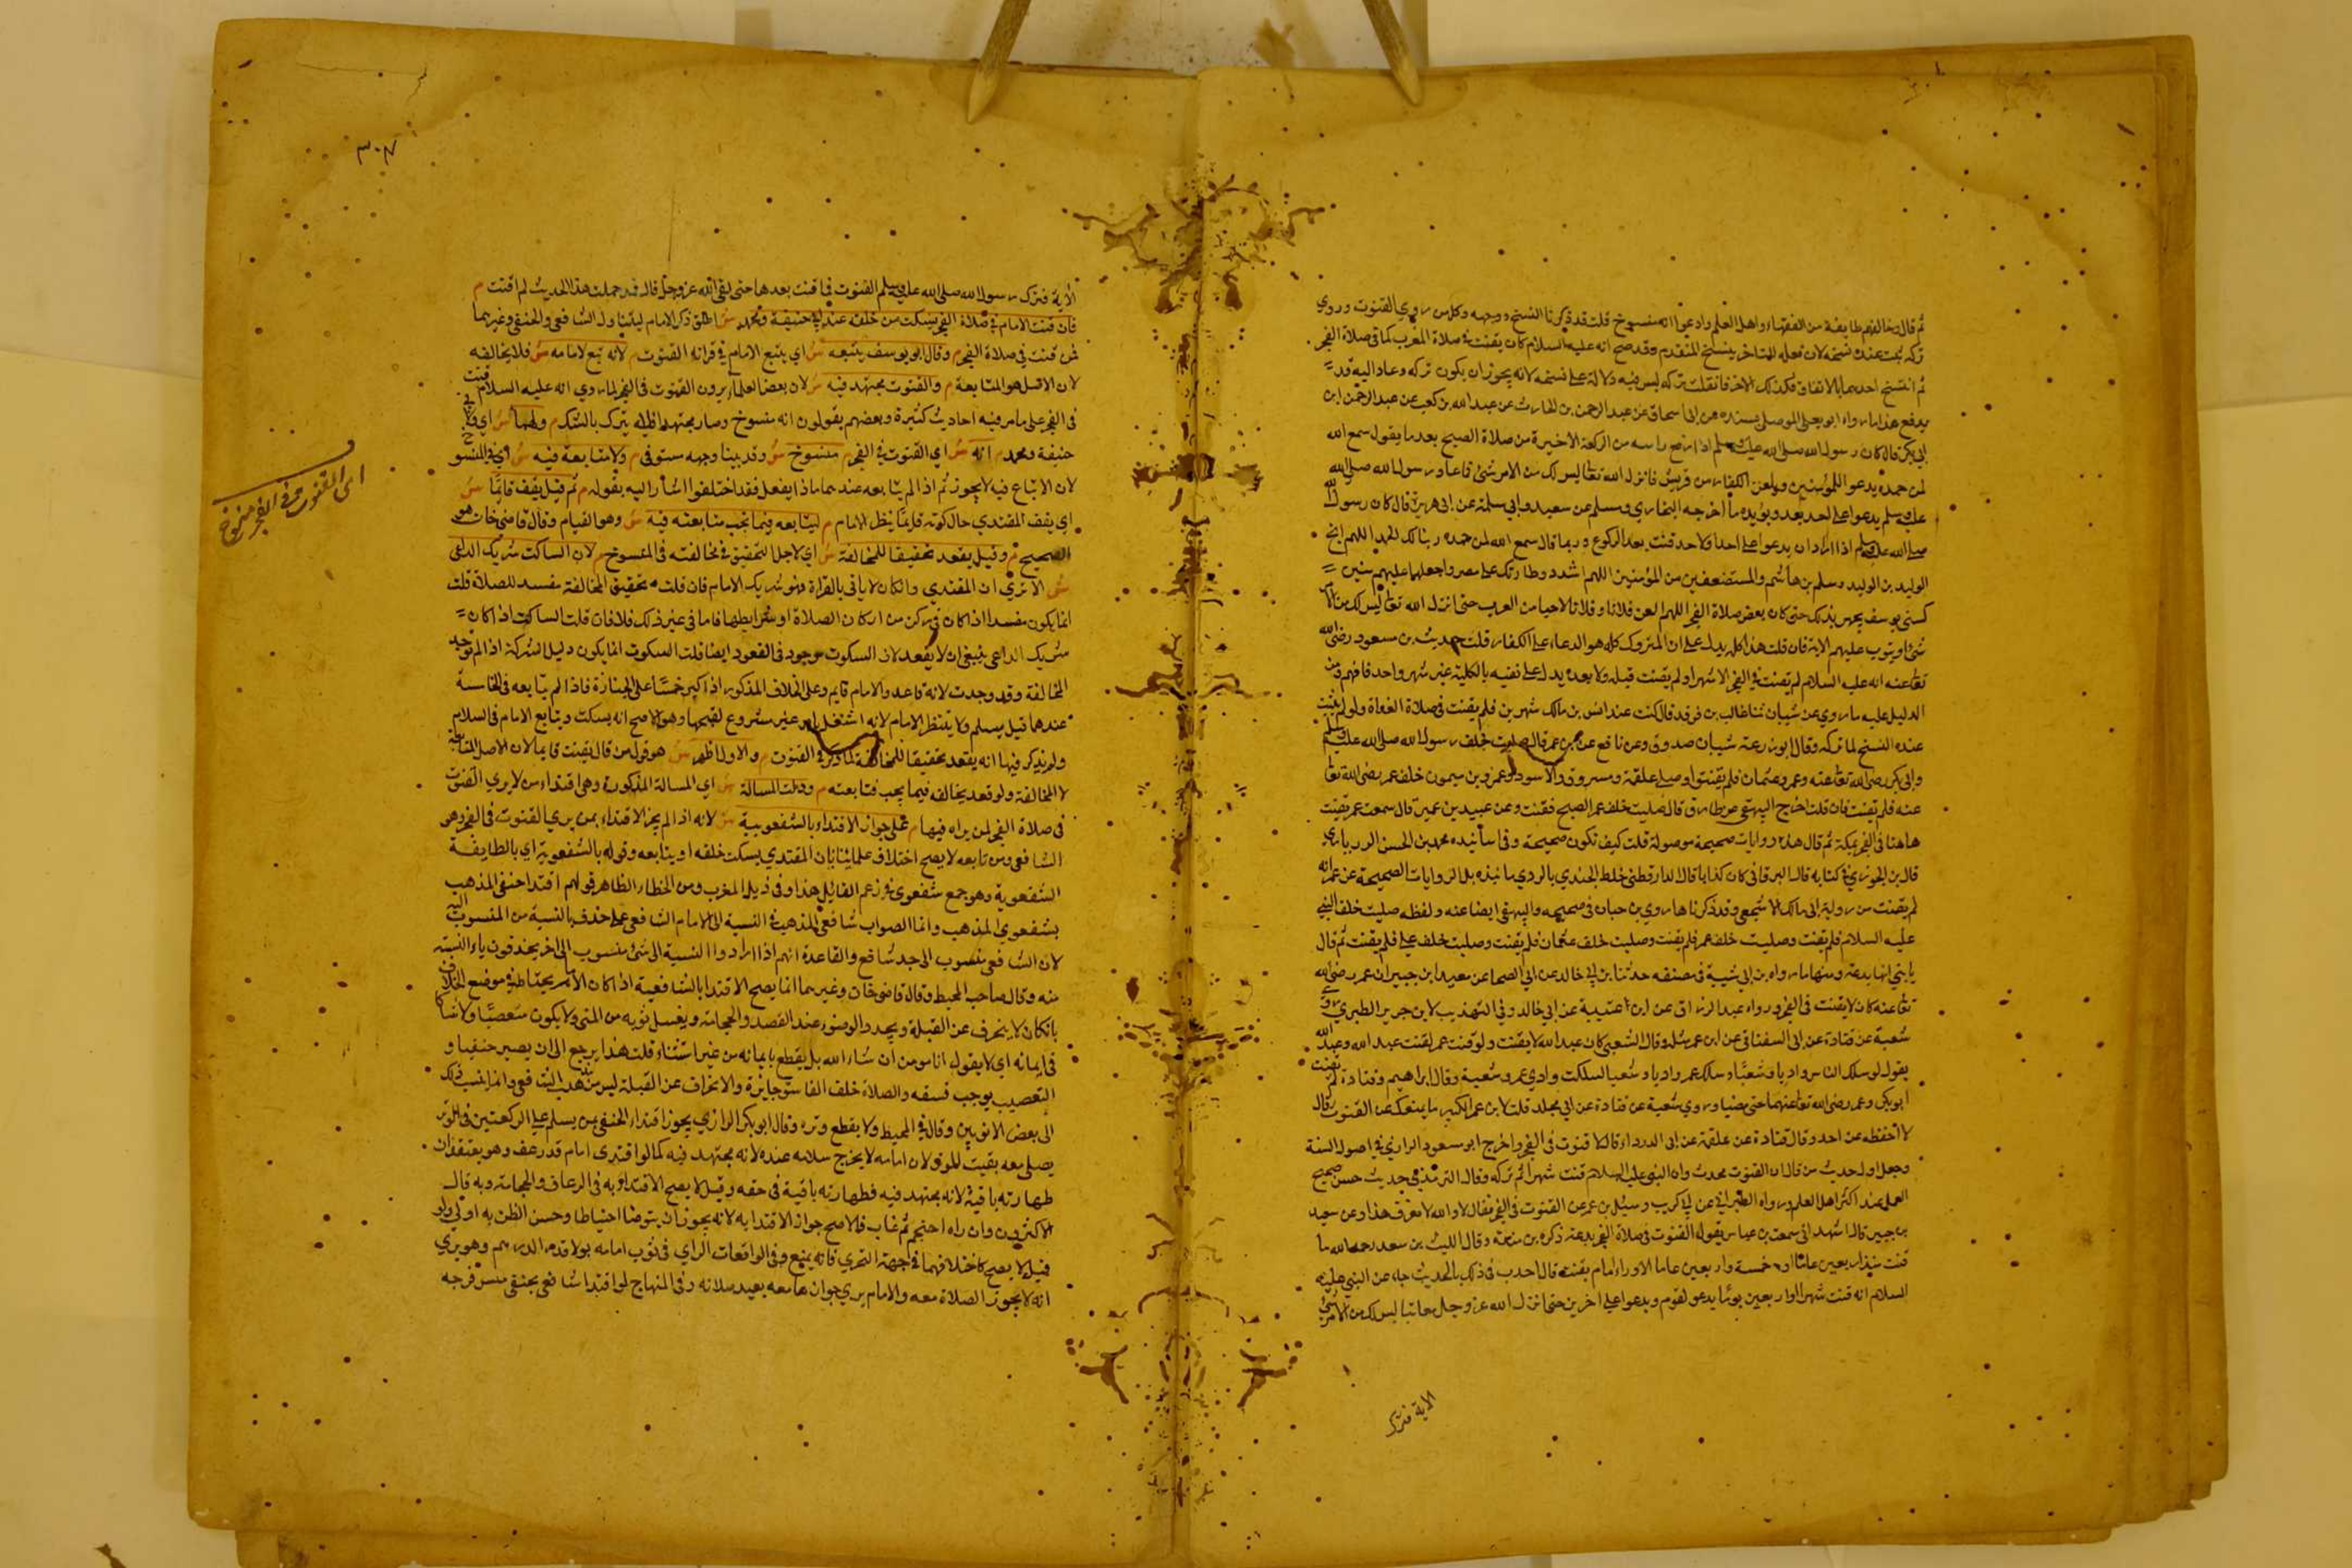 ثم قال وخالفهم طايفة من الفقهاء واهل العلم وادعوا انه منسوخ قلت قد ذكرنا النسخ ووجهه وكل من روي القنوت وروي
تركه ثبت عنده نسخه لان فعله المتاخر ينسخ المتقدم وقد صح انه عليه السلام كان يقنت في صلاة المغرب كما في صلاة الفجر
ثم انتسخ احدهما بالاتفاق فكذلك الاخر فان قلت تركه ليس فيه دلالة على نسخه لانه يجوز ان يكون تركه وعاد اليه قد
يدفع هذا ما رواه ابو يعلى الموصلي بسنده عن ابي اسحاق عن عبد الرحمن بن الحارث عن عبد الله بن كعب عن عبد الرحمن ابن
ابي بكر قال كان رسول الله صلى الله عليه وسلم اذا رفع راسه من الركعة الاخيرة من صلاة الصبح بعد ما يقول سمع الله
لمن حمده يدعو اللمؤمنين ويلعن الكفار من قريش فانزل الله تعالى ليس لك من الامر شئ فما عاد رسول الله صلى الله
عليه وسلم يدعو على احد بعد ويؤيده ما اخرجه البخاري ومسلم عن سعيد وابي سلمة عن ابي هريرة قال كان رسول الله
صلى الله عليه وسلم اذا اراد ان يدعو على احد او لاحد قنت بعد الركوع وربما قال سمع الله لمن حمده ربنا لك الحمد اللهم انج
الوليد بن الوليد وسلم بن هاشم والمستضعفين من المؤمنين اللهم اشدد وطاتك على مضر واجعلها عليهم سنين
كسني يوسف يجهر بذلك حتى كان بعض صلاة الفجر اللهم العن فلانا وفلانا لاحيا من العرب حتى انزل الله تعالى ليس لك من الامر
شئ او يتوب عليهم الاية فان قلت هذا كله يدل على ان المتروك كله هو الدعاء على الكفار قلت حديث بن مسعود رضي الله
تعالى عنه انه عليه السلام لم يقنت في الفجر الا شهرا ولم يقنت قبله ولا بعده يدل على نفيه بالكلية غير شهر واحد فافهم ومن
الدليل عليه ما روي عن شيبان ثنا غالب بن فرقد قال كنت عند انس بن مالك شهرين فلم يقنت في صلاة الغداة ولو لم يثبت
عنده النسخ لما تركه وقال ابو زرعة شيبان صدوق وعن نافع عن بن عمر قال صليت خلف رسول الله صلى الله عليه وسلم
وابي بكر رضي الله تعالى عنه وعمر وعثمان فلم يقنتوا وصلى علقمة ومسروق والاسود وعمرو بن ميمون خلف عمر رضي الله تعالى
عنه فلم يقنت فان قلت اخرج البيهقي عن طارق قال صليت خلف عمر الصبح فقنت وعن عبيد بن عمير قال سمعت عمر يقنت
هاهنا في الفجر بمكة ثم قال هذه روايات صحيحة موصولة قلت كيف تكون صحيحة وفي اسانيده محمد بن الحسن
قال بن الجوزي في كتابه قال البرقاني كان كذابا قال الدارقطني خلط الجيد بالردي بل الروايات الصحيحة عن عمر انه
لم يقنت من رواية ابي مالك الاشجعي وقد ذكرناها روي بن حبان في صحيحه والبيهقي ايضا عنه ولفظه صليت خلف النبي
عليه السلام فلم يقنت وصليت خلف عمر فلم يقنت وصليت خلف عثمان فلم يقنت وصليت خلف علي فلم يقنت ثم قال
يا بني انها بدعة ومنها ما رواه بن ابي شيبة في مصنفه حدثنا بن ابي خالد عن ابي الضحا عن سعيد ابن جبير ان عمر رضي الله
تعالى عنه كان لا يقنت في الفجر ورواه عبد الرزاق عن ابن عيينة عن ابي خالد وفي التهذيب لابن جرير الطبري روي
شعبة عن قتادة عن ابي عن ابن عمر مثله وقال الشعبي كان عبد الله لا يقنت ولو قنت عمر لقنت عبد الله وعبد الله
يقول لو سلك الناس واديا وشعبا وسلك عمر واديا وشعبا لسلكت وادي عمر وشعبه وقال ابراهيم وقتادة لم يقنت
ابو بكر وعمر رضي الله تعالى عنهما حتى مضيا وروي شعبة عن قتادة عن ابي مجلد قلت لابن عمر الكبر ما يمنعك عن القنوت قال
لا احفظه عن احد وقال قتادة عن علقمة عن ابي الدرداء قال لا قنوت في الفجر واخرج ابو سعود الرازي في اصول السنة
وجعل اول حديث من قال ان القنوت محدث وان النبي عليه السلام قنت شهرا ثم تركه وقال الترمذي حديث حسن صحيح
العمل عند اكثر اهل العلم ورواه الطبراني عن ابي كريب وسئل بن عمر عن القنوت في الفجر فقال لا والله لا نعرف هذا وعن سعيد
بن جبير قال اشهد اني سمعت بن عباس يقول القنوت في صلاة الفجر بدعة ذكره بن منده وقال الليث بن سعد رحمه الله ما
قنت منذ اربعين عاما او خمسة واربعين عاما الا وراء امام يقنت قال احدب في ذلك بالحديث جاء عن النبي عليه
السلام انه قنت شهرا او اربعين يوما يدعو لقوم ويدعو على اخرين حتى انزل الله عز وجل معاتبا ليس لك من الامر شئ
الاية فترك
٣٠٧
الاية فترك رسول الله صلى الله عليه وسلم القنوت فما قنت بعدها حتى لقي الله عز وجل قال فمذ حملت هذا الحديث لم اقنت م
فان قنت الامام في صلاة الفجر يسكت من خلفه عند ابي حنيفة ومحمد ش اطلق ذكر الامام ليتناول الشافعي والحنفي وغيرهما
لمن قنت في صلاة الفجر م وقال ابو يوسف يتبعه ش اي يتبع الامام في قراته القنوت م لانه تبع لامامه ش فلا يخالفه
لان الاصل هو المتابعة م والقنوت مجتهد فيه ش لان بعض العلماء يرون القنوت في الفجر لما روي انه عليه السلام قنت
في الفجر على ما مر فيه احاديث كثيرة وبعضهم يقولون انه منسوخ وصار مجتهدا فلا يترك بالشك م ولهما ش اي لابي
حنيفة ومحمد م انه ش اي القنوت في الفجر م منسوخ ش وقد بينا وجهه مستوفى م ولا متابعة فيه ش اي في المنسوخ
لان الاتباع فيه لا يجوز ثم اذا لم يتابعه عندهما ماذا يفعل فقد اختلفوا اشار اليه بقوله م ثم قيل يقف قايما ش
اي يقف المقتدي حال كونه قايما ينظر الامام م ليتابعه فيما يجب متابعته فيه ش وهو القيام وقال قاضي خان هو
الصحيح م وقيل يقعد تحقيقا للمخالفة ش اي لاجل التحقيق في مخالفته في المنسوخ م لان الساكت شريك الداعي
ش الا تري ان المقتدي وان كان لا ياتي بالقراة وهو شريك الامام فان قلت تحقيق المخالفة مفسد للصلاة قلت
انما يكون مفسدا اذا كان في ركن من اركان الصلاة او شرايطها فاما في غير ذلك فلا فان قلت الساكت اذا كان
شريك الداعي ينبغي ان لا يقعد لان السكوت موجود في القعود ايضا قلت السكوت انما يكون دليل الشركة اذا لم توجد
المخالفة وقد وجدت لانه قاعد والامام قايم وعلى الخلاف المذكور اذا كبر خمسا على الجنازة فاذا لم يتابعه في الخامسة
عندهما قيل يسلم ولا ينتظر الامام لانه اشتغل غير مشروع وهو الاصح انه يسكت ويتابع الامام في السلام
ولم يذكر فيها انه يقعد تحقيقا للمخالفة كما ذكر في القنوت م والاول اظهر ش هو قول من قال يقنت قايما لان الاصل المتابعة
لا المخالفة ولو قعد يخالفه فيما يجب متابعته م ودلت المسالة ش اي المسالة المذكورة وهي اقتداء من لا يري القنوت
في صلاة الفجر لمن يراه فيها م على جواز الاقتداء بالشفعوية ش لانه اذا لم يجز الاقتداء بمن يري القنوت في الفجر وهو
الشافعي ومن تابعه لا يصح اختلاف علمائنا بان المقتدي يسكت خلفه او يتابعه وقوله بالشفعوية اي بالطايفة
الشفعوية وهو جمع شفعوي في زعم القائل هذا وفي ذيل المغرب ومن الخطاء الظاهر قولهم اقتدا حنفي المذهب
بشفعوي المذهب وانما الصواب شافعي المذهب في النسبة الى الامام الشافعي على حذف ياء النسبة من المنسوب اليه
لان الشافعي منسوب الى جد شافع والقاعدة انهم اذا ارادوا النسبة الى شئ منسوب الى اخر يحذفون ياء النسبة
منه وقال صاحب المحيط وقال قاضي خان وغيرهما انما يصح الاقتدا بالشافعية اذا كان الامر يحتاط في موضع الخلاف
بان كان لا ينحرف عن القبلة ويجدد الوضوء عند الفصد والحجامة ويغسل ثوبه من المني ولا يكون متعصبا ولا شاكا
في ايمانه اي لا يقول انا مومن ان شاء الله بل يقطع بايمانه من غير استثناء قلت هذا يرجع الى ان يصير حنفيا و
التعصيب يوجب فسقه والصلاة خلف الفاسق جايزة والانحراف عن القبلة ليس مذهب الشافعي وانما نسب ذلك
الى بعض الاذويين وقال في المحيط ولا يقطع وتره وقال ابو بكر الرازي يجوز اقتداء الحنفي بمن يسلم على الركعتين في الوتر
يصلي معه بقية الوتر لان امامه لا يخرج سلامه عنده لانه مجتهد فيه كما لو اقتدى امام قد رعف وهو يعتقد ان
طهارته باقية لانه مجتهد فيه فطهارته باقية في حقه وقيل لا يصح الاقتداء به في الرعاف والحجامة وبه قال
الاكثرون وان راه احتجم ثم غاب فالاصح جواز الاقتدا به لانه يجوز ان يتوضا احتياطا وحسن الظن به اولى ولو
قيل لا يصح كاختلافهما في جهة التحري فانه يمنع وفي الواقعات الراي في ثوب امامه بولا قدر الدرهم وهو يري
انه لا يجوز الصلاة معه والامام يري جوازها معه يعيد صلاته وفي المنهاج لو اقتدا شافعي بحنفي مس فرجه
اي القنوت في الفجر منسوخ